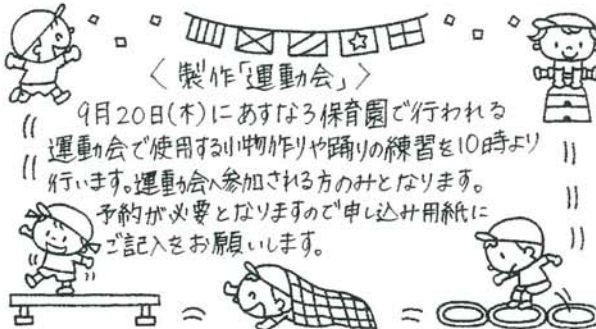 〈製作「運動会」〉
9月20日(木)にあすなろ保育園で行われる
運動会で使用する小物作りや踊りの練習を10時より
行います。運動会へ参加される方のみとなります。
予約が必要となりますので申し込み用紙に
ご記入をお願いします。